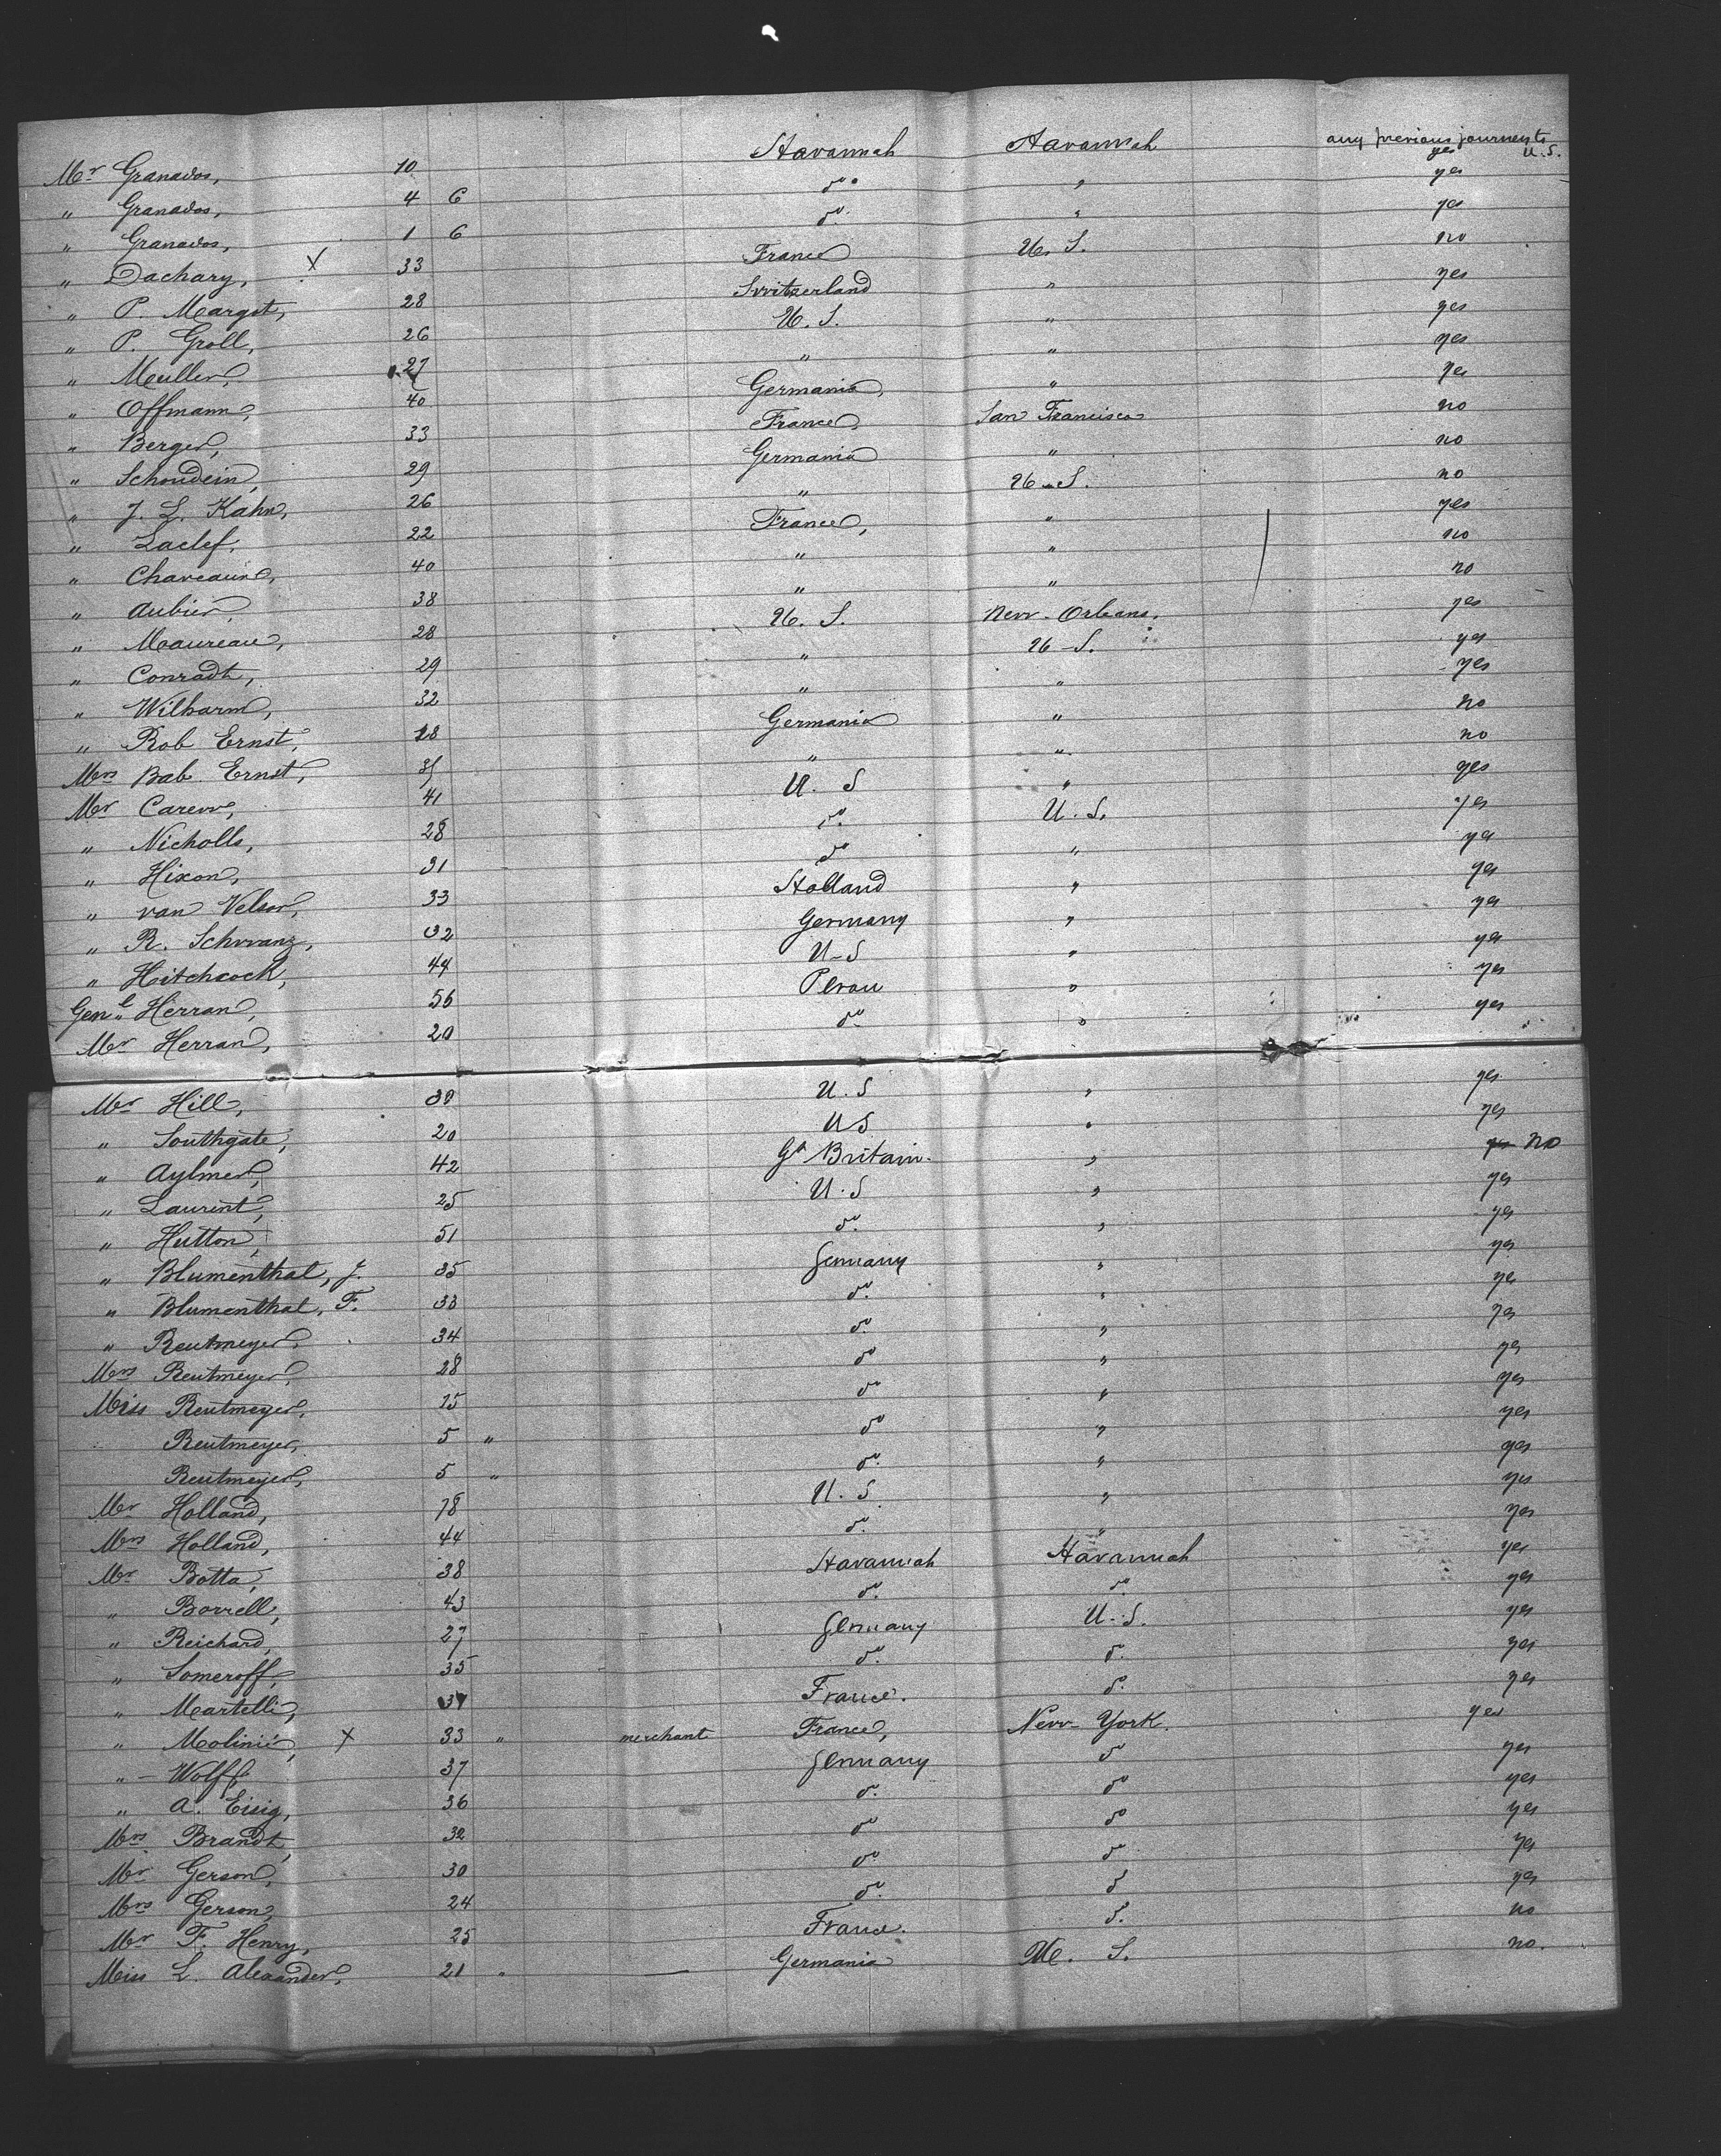 any previous journey to U.S.
Mr Granados, 10 Havannah Havannah yes
" Granados, 4 6 do " yes
" Granados, 1 6 do. " yes
" Dachary, X 33 France U. S. no
" P. Margot, 28 Switzerland " yes
" P. Groll, 26 U. S. " yes
" Muller, 27 " " yes
" Offmann, 40 Germania, " yes
" Berger, 33 France, San Francisco no
" Schondein, 29 Germania " no
" J. L. Kahn, 26 " U. S. no
" Laclef, 22 France, " yes
" Chaveaux, 40 " " no
" Aubier, 38 " " no
" Maureau, 28 U. S. New-Orleans, yes
" Conradt, 29 " U-S. yes
" Wilharm, 32 " " yes
" Rob Ernst, 28 Germania " no
Mrs Bab. Ernst, " " no
Mr Carew, 41 U. S " yes
" Nicholls, 28 do. U. S. yes
" Hixon, 31 do " yes
" van Velsor, 33 Holland " yes
" R. Schwanz, 32 Germany " yes
" Hitchcock, 44 U-S " yes
Genl Herran, 56 Perou " yes
Mr Herran, 20 do " yes
Mr Hill, 30 U. S " yes
" Southgate, 20 US " yes
" Aylmer, 42 Gt Britain. " yes no
" Laurent, 25 U. S " yes
" Hutton, 51 do. " yes
" Blumenthal, J. 35 Germany " yes
" Blumenthal, F. 33 do. " yes
" Reutmeyer, 34 do. " yes
Mrs Reutmeyer, 28 do " yes
Miss Reutmeyer, 25 do " yes
Reutmeyer, 5 " do " yes
Reutmeyer, 5 " do. " yes
Mr Holland, 78 U. S. " yes
Mrs Holland, 44 do. " yes
Mr Botta, 38 Havannah Havannah yes
" Borrell, 43 do. do. yes
" Reichard, 27 Germany U-S. yes
" Someroff, 35 do. do. yes
" Martelli, 34 France. do. yes
" Molinié, X 33 " merchant France, New-York. yes
" - Wolff 37 Germany do yes
" A. Eisig, 36 do. do yes
Mrs Brandt, 32 do do yes
Mr Gerson, 30 do. do yes
Mrs Gerson, 24 do. do yes
Mr F. Henry, 25 France. do. no
Miss L. Alexander, 21 " — Germania U. S. no.